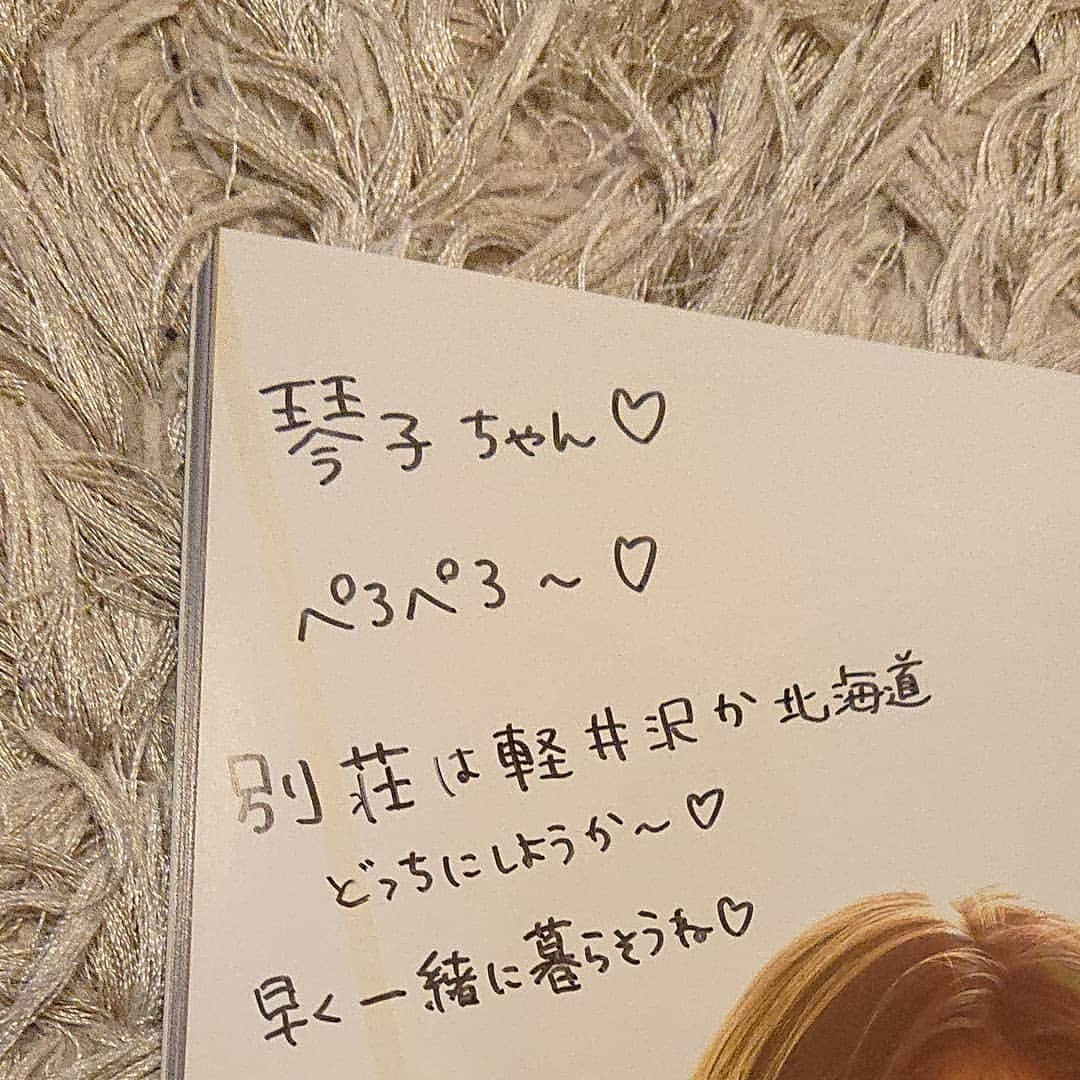 琴子ちゃん♡
ぺろぺろ～♡
別荘は軽井沢か北海道
どっちにしようか～♡
早く一緒に暮らそうね♡